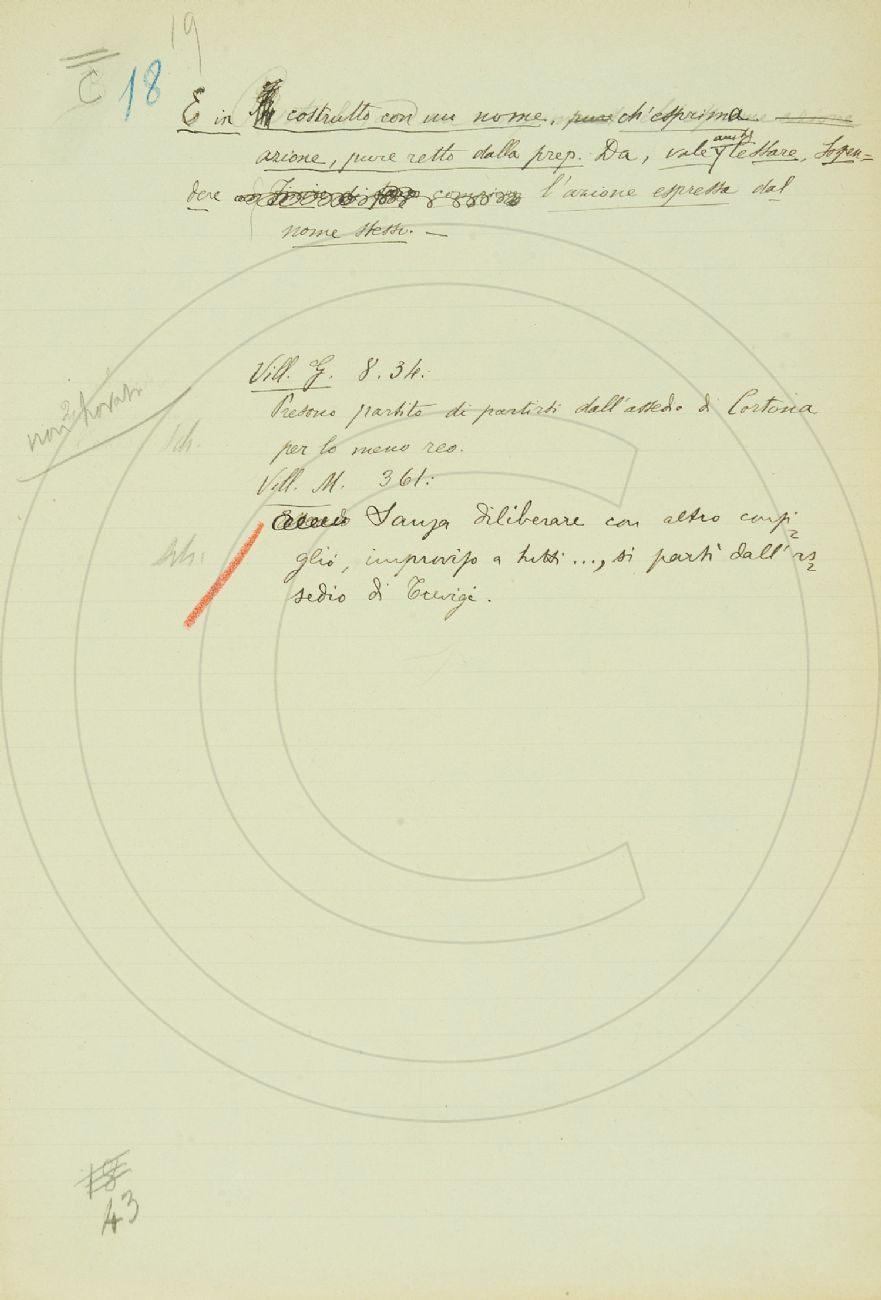 19
C 18
E in costrutto con un nome, pure ch'esprima
azione, pure retto dalla prep. Da, vale anche Cessare, Sospen=
dere l'azione espressa dal
nome stesso. —
Vill. G. 8. 34:
non trovato
Presono partito di partirsi dall'assedio di Cortona
per lo meno reo.
Vill. M. 361:
Sanza diliberare con altro consi=
glio, improviso a tutti ..., si partì dall'as=
sedio di Trevigi.
18
43